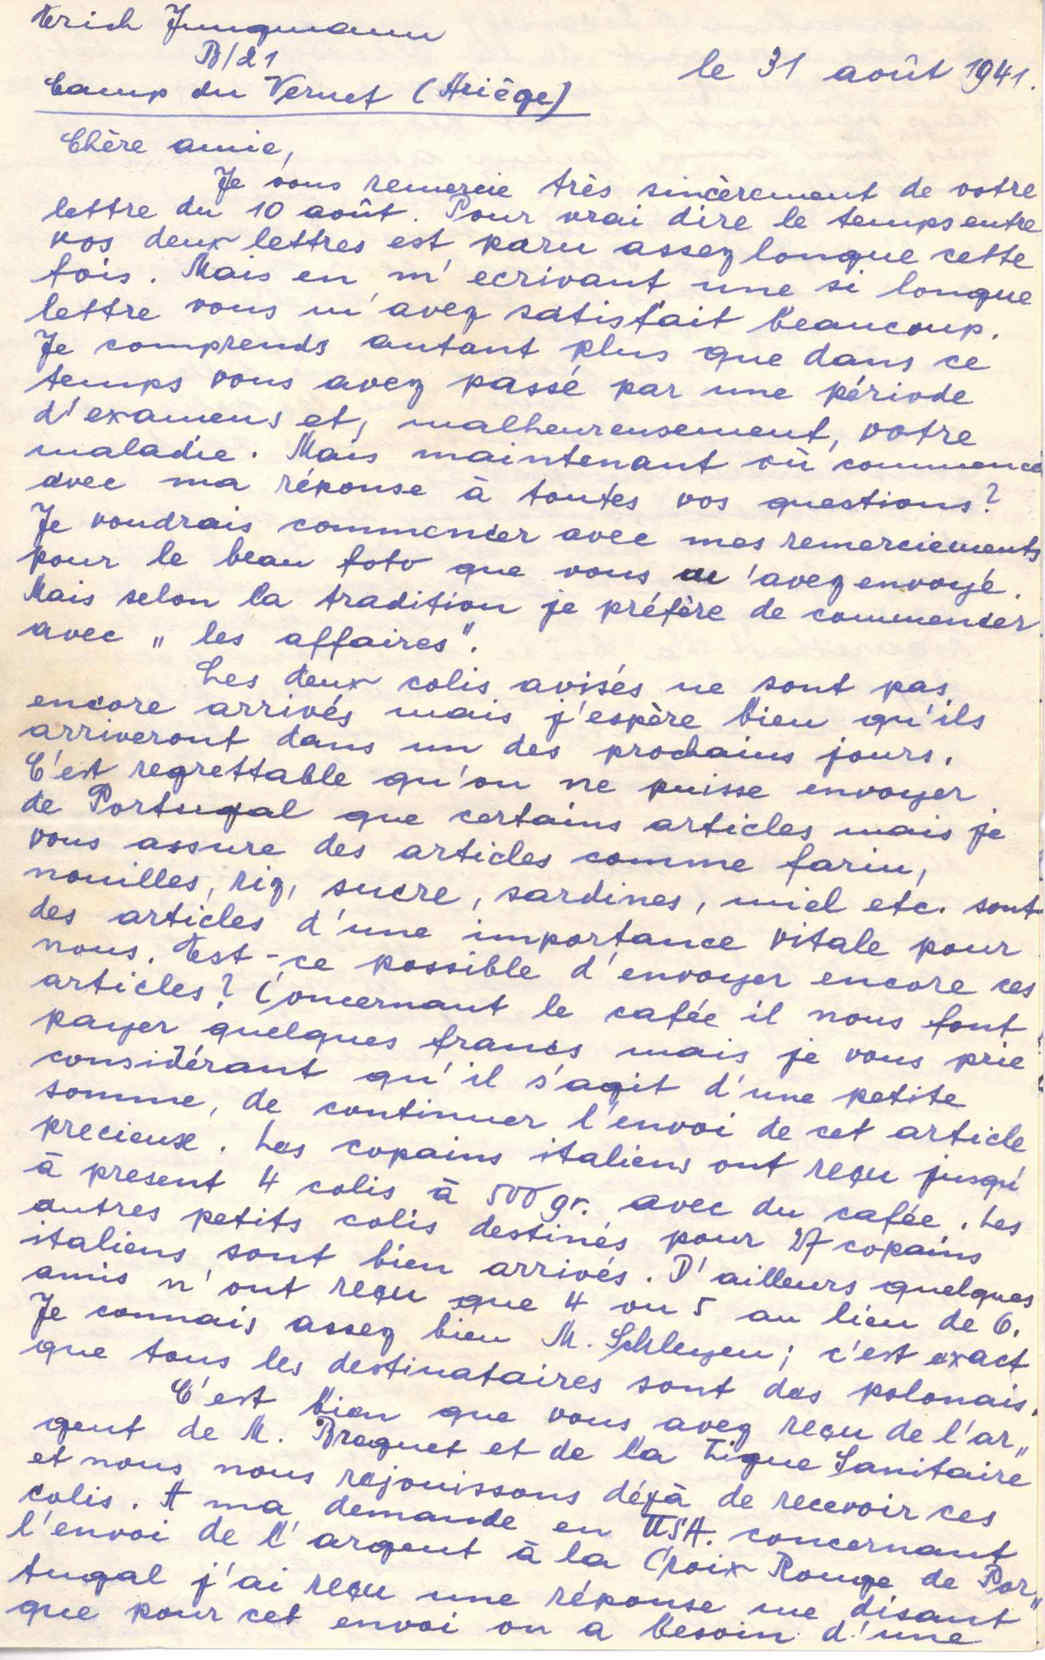 Erich Jungmann
B/21
Camp du Vernet (Ariège)
le 31 août 1941.
Chère amie,
Je vous remercie très sincèrement de votre
lettre du 10 août. Pour vrai dire le temps entre
vos deux lettres est paru assez longue cette
fois. Mais en m'ecrivant une si longue
lettre vous m'avez satisfait beaucoup.
Je comprends autant plus que dans ce
temps vous avez passé par une période
d'examens et, malheureusement, votre
maladie. Mais maintenant où commence
avec ma réponse à toutes vos questions?
Je voudrais commencer avec mes remerciements
pour le beau foto que vous m'avez envoyé.
Mais selon la tradition je préfère de commencer
avec „les affaires".
Les deux colis avisés ne sont pas
encore arrivés mais j'espère bien qu'ils
arriveront dans un des prochains jours.
C'est regrettable qu'on ne puisse envoyer
de Portugal que certains articles mais je
vous assure des articles comme farin,
nouilles, riz, sucre, sardines, miel etc. sont
des articles d'une importance vitale pour
nous. Est-ce possible d'envoyer encore ces
articles? Concernant le cafée il nous font
payer quelques francs mais je vous prie
considérant qu'il s'agit d'une petite
somme, de continuer l'envoi de cet article
precieux. Les copains italiens ont reçu jusqu'
à present 4 colis à 500 gr. avec du cafée. Les
autres petits colis destinés pour 27 copains
italiens sont bien arrivés. D'ailleurs quelques
amis n'ont reçu que 4 ou 5 au lieu de 6.
Je connais assez bien M. Schleyen; c'est exact
que tous les destinataires sont des polonais.
C'est bien que vous avez reçu de l'ar„
gent de M. Braquet et de la Ligue Sanitaire
et nous nous rejouissons déjà de recevoir ces
colis. A ma demande en USA. concernant
l'envoi de l'argent à la Croix Rouge de Por„
tugal j'ai reçu une réponse me disant
que pour cet envoi on a besoin d'une